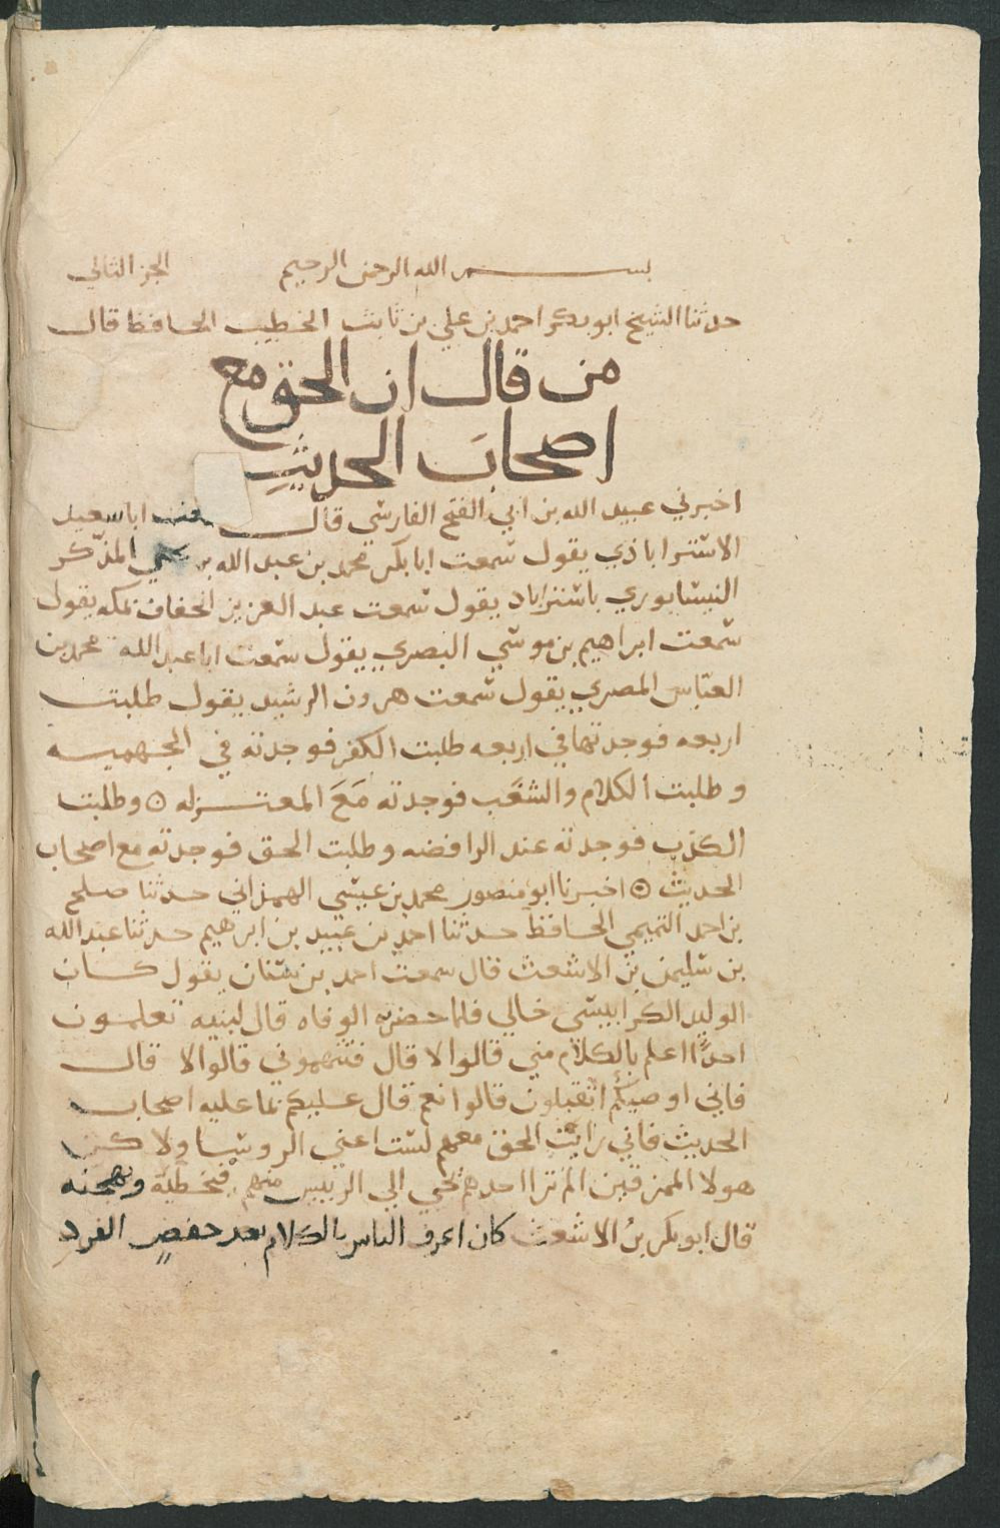 بسم الله الرحمن الرحيم الجز الثاني
حدثنا الشيخ ابو بكر احمد بن علي بن ثابت الخطيب الحافظ قال
من قال ان الحق مع
اصحاب الحديث
اخبرني عبيد الله بن ابي الفتح الفارسي قال سمعت ابا سعيد
الاستراباذي يقول سمعت ابا بكر محمد بن عبد الله بن المذكر
النيسابوري باستراباد يقول سمعت عبد العزيز الخفاف بمكه يقول
سمعت ابراهيم بن موسي البصري يقول سمعت ابا عبد الله محمد بن
العباس المصري يقول سمعت هرون الرشيد يقول طلبت
اربعه فوجدتها في اربعه طلبت الكفر فوجدته في الجهميه
وطلبت الكلام والشغب فوجدته مع المعتزله ⊙ وطلبت
الكذب فوجدته عند الرافضه وطلبت الحق فوجدته مع اصحاب
الحديث ⊙ اخبرنا ابو منصور محمد بن عيسي الهمذاني حدثنا صلح
بن احمد التميمي الحافظ حدثنا احمد بن عبيد بن ابرهيم حدثنا عبد الله
بن سليمن بن الاشعث قال سمعت احمد بن سنان يقول كان
الوليد الكرابيسي خالي فلما حضرته الوفاه قال لبنيه تعلمون
احدًا اعلم بالكلام مني قالوا لا قال فتتهموني قالوا لا قال
فاني اوصيكم اتقبلون قالوا نعم قال عليكم بما عليه اصحاب
الحديث فاني رايت الحق معهم لست اعني الروسا ولاكن
هولا الممزقين الم ترا احدهم يجي الي الرييس منهم فيخطيه ويهجنه
قال ابو بكر بن الاشعث كان اعرف الناس بالكلام بعد حفص الفرد